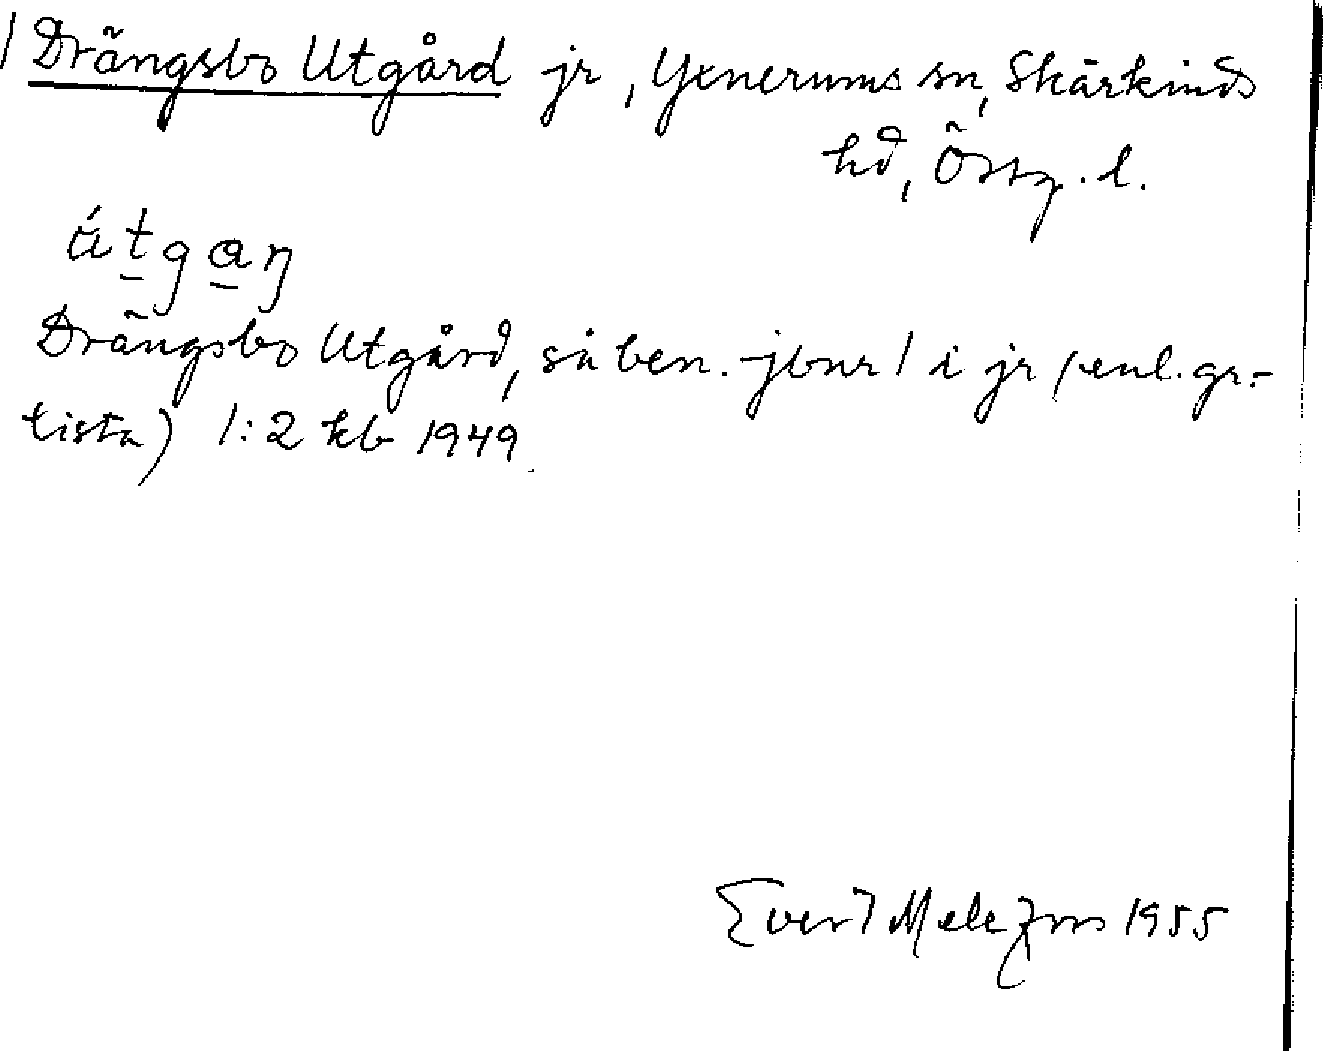 / Drängsbo Utgård jr, Yxnerums sn, Skärkinds
hd, Östg. l.
útgaŋ
Drängsbo Utgård, så ben. jbnr 1 i jr (enl. gr.-
lista) 1:2 kb 1949.
Evert Melefors 1955